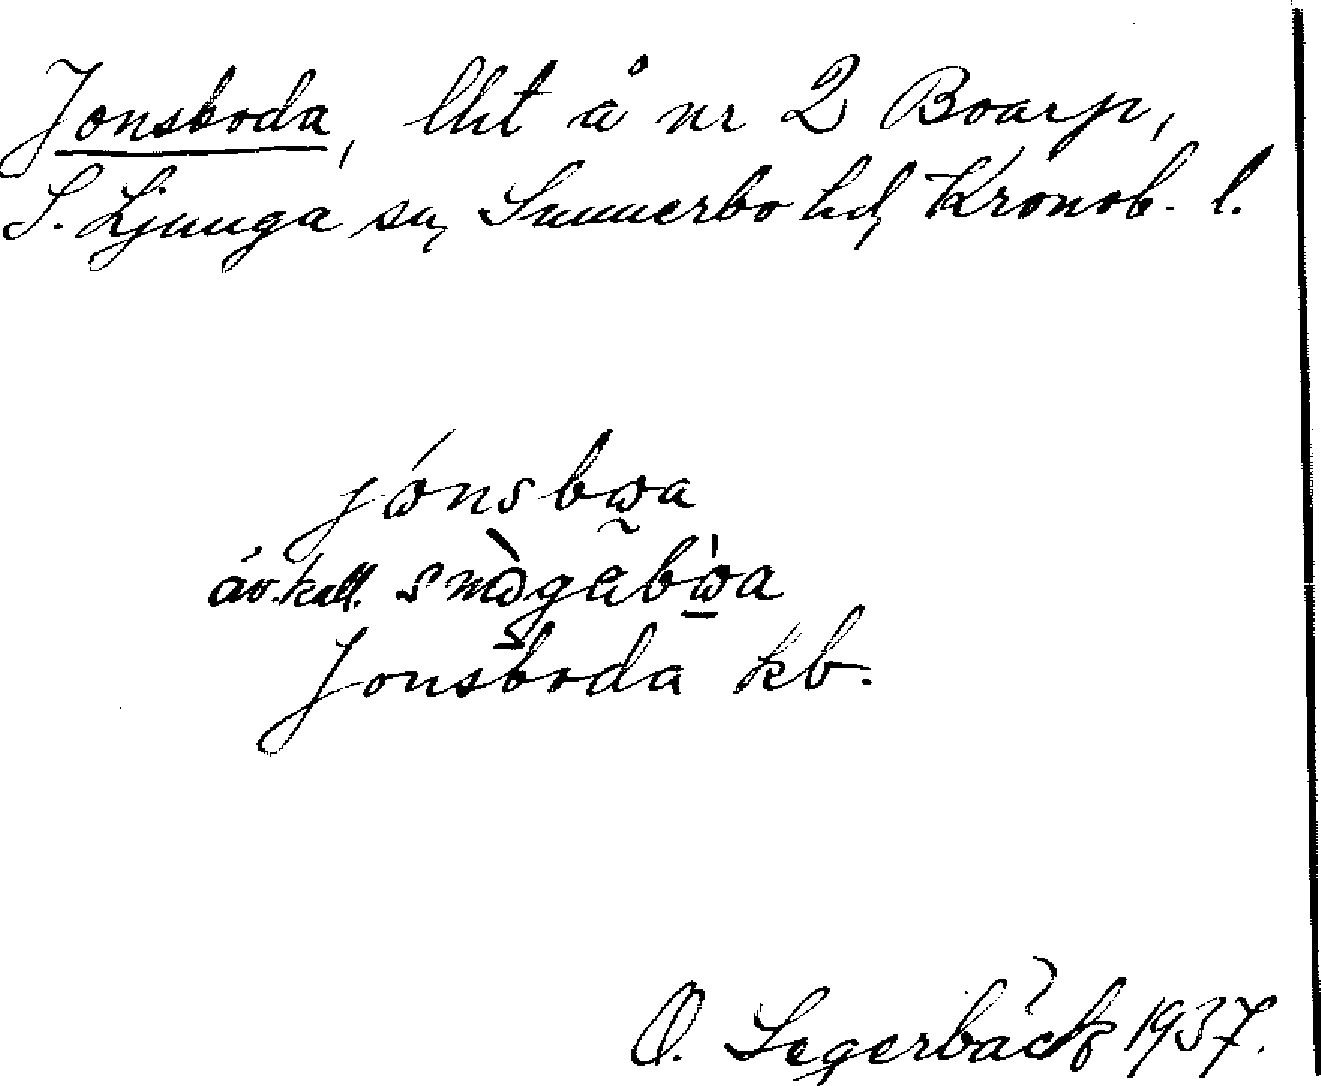 Jonsboda, lht å nr 2 Boarp,
S. Ljunga sn, Sunnerbo hd, Kronob. l.
jónsbωa
äv. kall. smògabὼa
Jonsboda kb.
O. Segerbäck 1937.